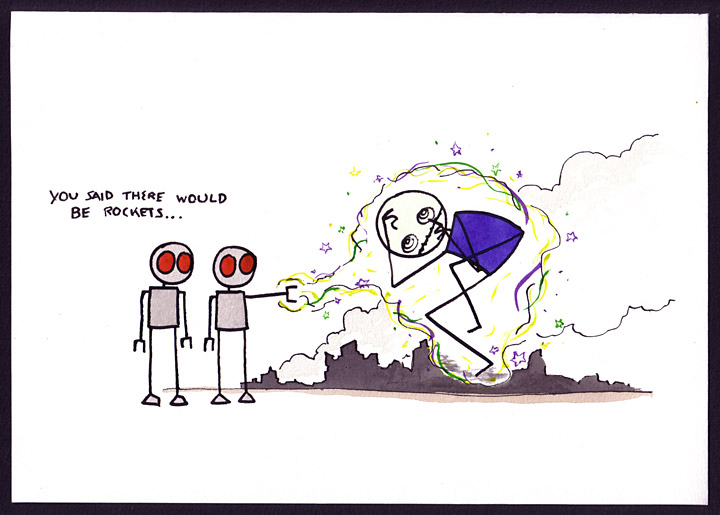 YOU SAID THERE WOULD
BE ROCKETS...